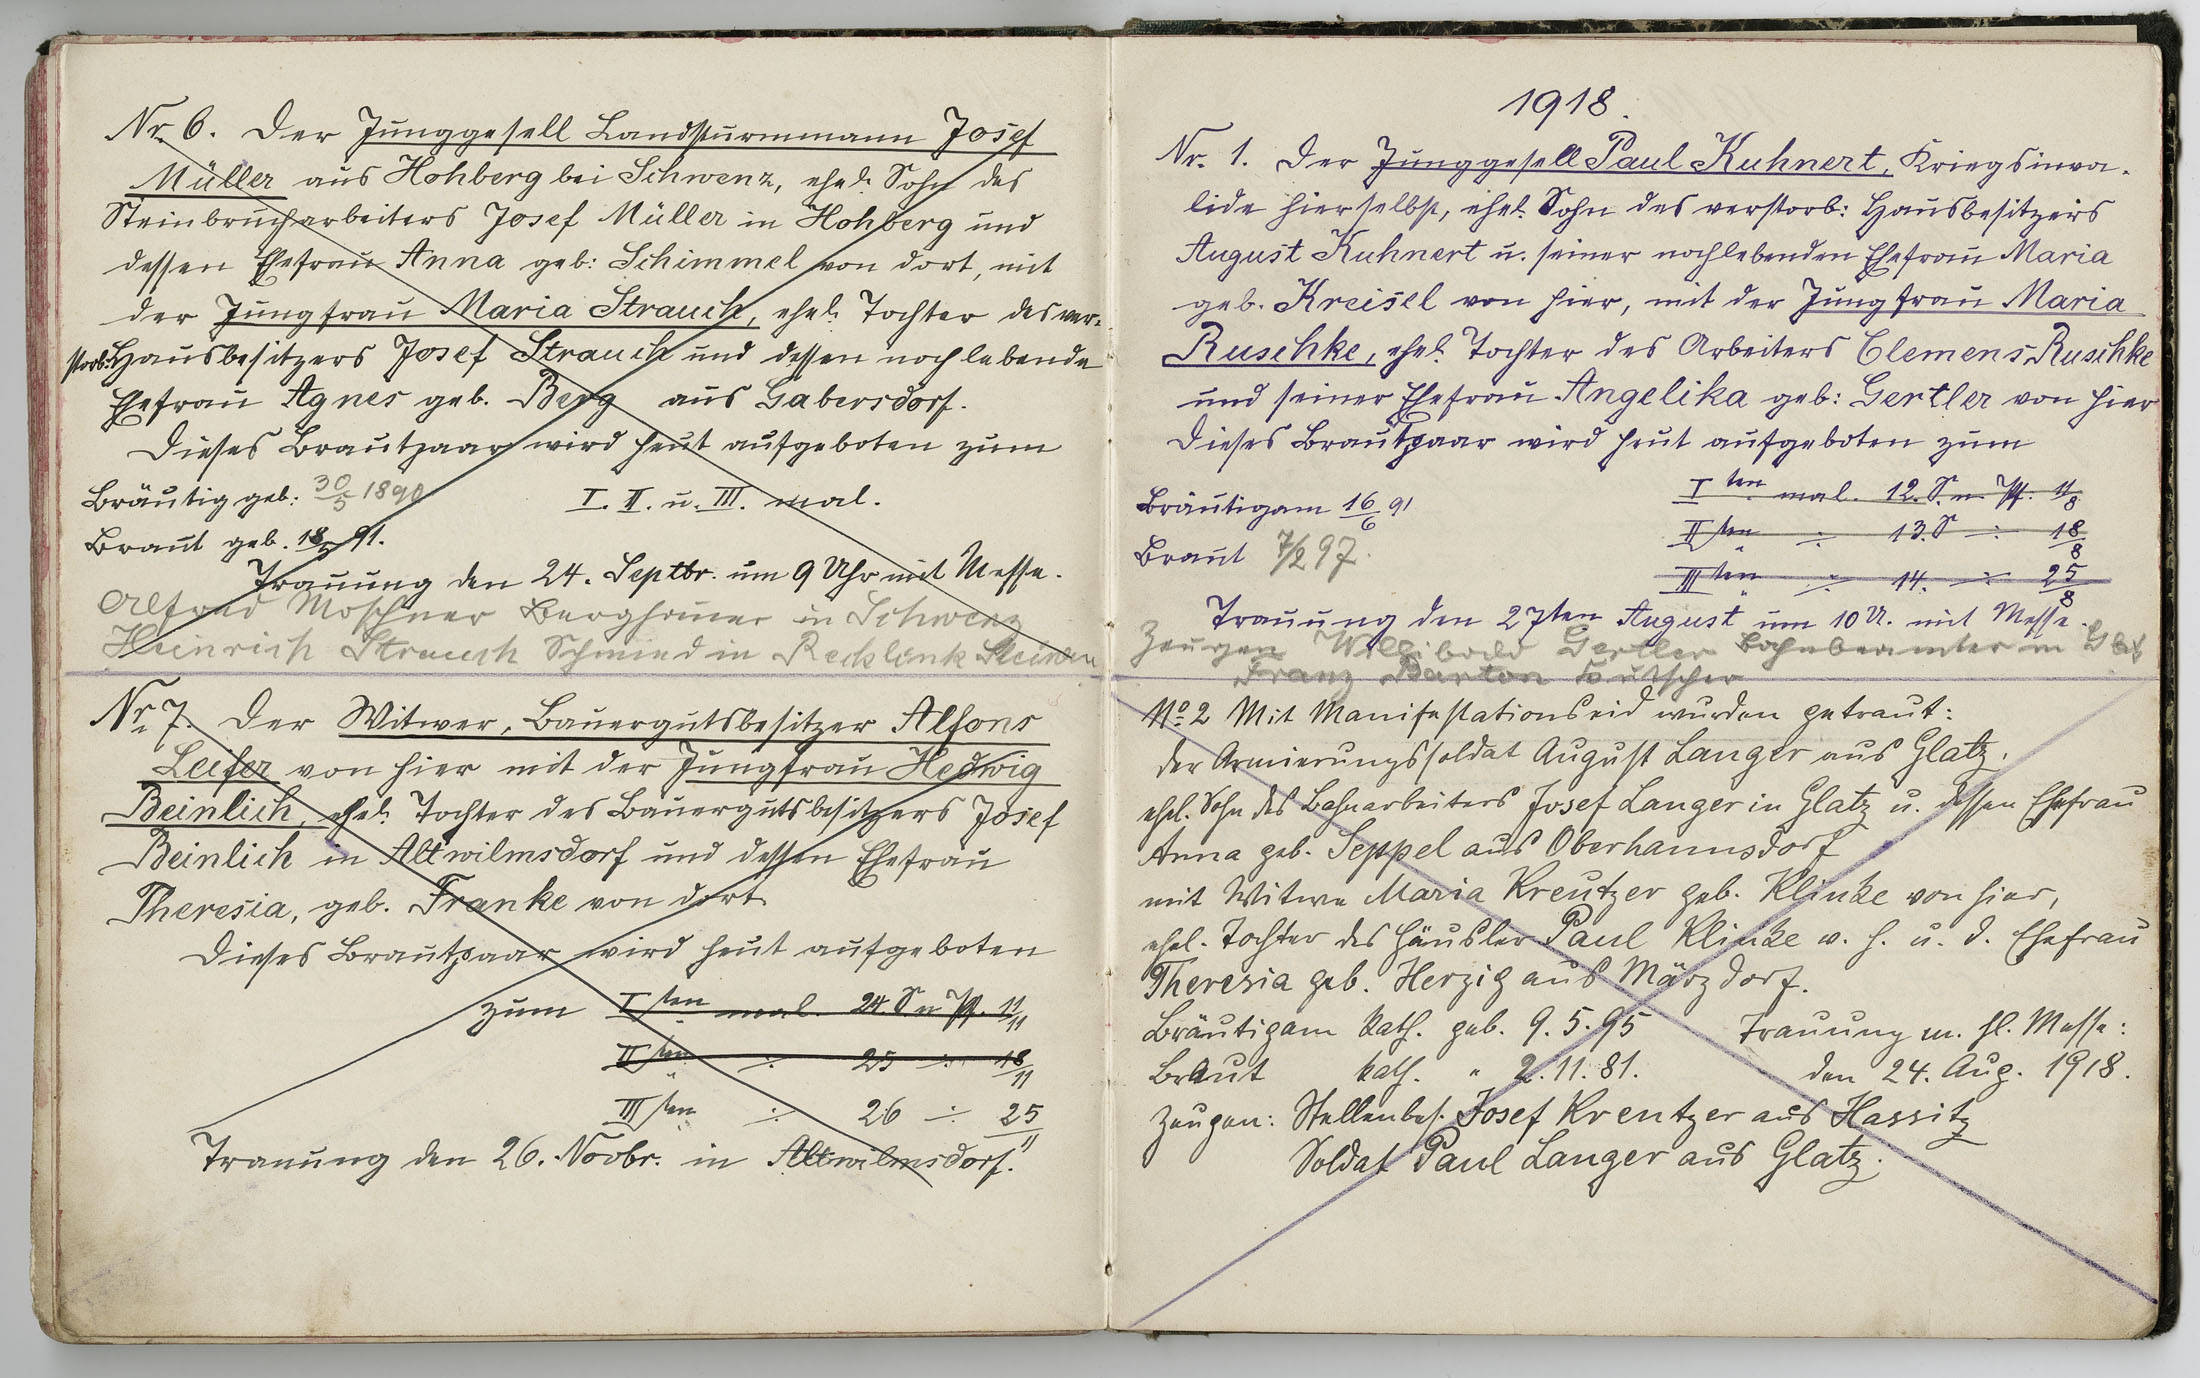 Nr. 6. Der Junggesell Landsturmmann Josef
Müller aus Hohberg bei Schwenz, ehel. Sohn des
Steinbrucharbeiters Josef Müller in Hohberg und
dessen Ehefrau Anna geb: Schimmel von dort, mit
der Jungfrau Maria Strauch, ehel. Tochter des ver-
storb: Hausbesitzers Josef Strauch und dessen noch lebende
Ehefrau Agnes geb. Berg aus Gabersdorf.
Dieses Brautpaar wird heut aufgeboten zum
I. II. u. III. mal.
Bräutig geb: 30/5 1890
Braut geb. 91.
Trauung den 24. Septbr. um 9 Uhr mit Messe.
Alfred Moschner Berghauer in Schwenz
Heinrich Strauch Schmied in
Nr. 7. Der Witwer, Bauergutsbesitzer Alfons
Leifer von hier mit der Jungfrau Hedwig
Beinlich, ehel. Tochter des Bauergutsbesitzers Josef
Beinlich in Altwilmsdorf und dessen Ehefrau
Theresia, geb. Franke von dort.
Dieses Brautpaar wird heut aufgeboten
zum Iten mal. 24. S n Pf. 11/11
IIten " ÷ 25 ÷ 18/11
IIIten " ÷ 26 ÷ 25/11
Trauung den 26. Novbr. in Altwilmsdorf.
1918.
Nr. 1. Der Junggesell Paul Kuhnert, Kriegsinva-
lide hierselbst, ehel. Sohn des verstorb: Hausbesitzers
August Kuhnert u. seiner nochlebenden Ehefrau Maria
geb. Kreisel von hier, mit der Jungfrau Maria
Ruschke, ehel. Tochter des Arbeiters Clemens Ruschke
und seiner Ehefrau Angelika geb: Gertler von hier
Dieses Brautpaar wird heut aufgeboten zum
Iten mal. 12. S. n. Pf. 11/8
Bräutigam 16/6 91
IIten " ÷ 13. S ÷ 18/8
Braut 7/2 97.
IIIten " ÷ 14. ÷ 25/8
Trauung den 27ten August um 10 U. mit Messe.
Zeugen Willibald Gertler Bahnbeamter in Glatz
Franz Barton Kutscher
No 2 Mit Manifestationseid wurden getraut:
der Armierungssoldat August Langer aus Glatz,
ehel. Sohn des Bahnarbeiters Josef Langer in Glatz u. dessen Ehefrau
Anna geb. Seppel aus Oberhannsdorf
mit Witwe Maria Kreutzer geb. Klinke von hier,
ehel. Tochter des Häusler Paul Klinke v. h. u. d. Ehefrau
Theresia geb. Herzig aus Märzdorf.
Bräutigam kath. geb. 9. 5. 95 Trauung m. hl. Messe:
Braut kath. " 2. 11. 81. den 24. Aug. 1918.
Zeugen: Stellenbes. Josef Kreutzer aus Hassitz
Soldat Paul Langer aus Glatz.